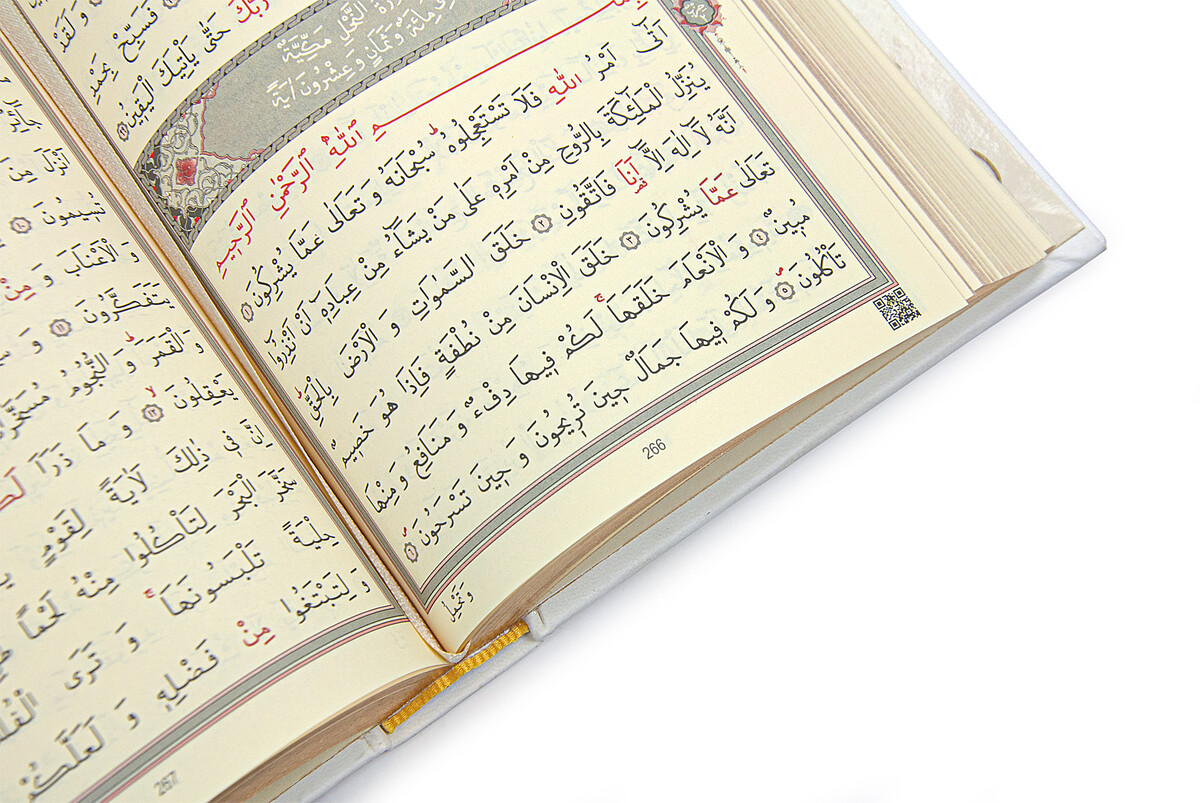 وَ لَقَدْ
فَسَبِّحْ بِحَمْدِ
رَبَّكَ حَتّٰى يَأْتِيَكَ الْيَقِينُ ﴿٩٩﴾
سُورَةُ النَّحْلِ مَكِّيَّةٌ
مِائَةٌ وَ ثَمَانٍ وَ عِشْرُونَ اٰيَةً
بِسْمِ اللّٰهِ الرَّحْمٰنِ الرَّحِيمِ
اَتٰٓى اَمْرُ اللّٰهِ فَلَا تَسْتَعْجِلُوهُ سُبْحَانَهُ وَ تَعَالٰى عَمَّا يُشْرِكُونَ ﴿١﴾
يُنَزِّلُ الْمَلٰٓئِكَةَ بِالرُّوحِ مِنْ اَمْرِهٖ عَلٰى مَنْ يَشَٓاءُ مِنْ عِبَادِهٖٓ اَنْ اَنْذِرُٓوا
اَنَّهُ لَٓا اِلٰهَ اِلَّٓا اَنَا فَاتَّقُونِ ﴿٢﴾ خَلَقَ السَّمٰوَاتِ وَ الْاَرْضَ بِالْحَقِّ
تَعَالٰى عَمَّا يُشْرِكُونَ ﴿٣﴾ خَلَقَ الْاِنْسَانَ مِنْ نُطْفَةٍ فَاِذَا هُوَ خَصِيمٌ
مُبِينٌ ﴿٤﴾ وَ الْاَنْعَامَ خَلَقَهَا لَكُمْ فِيهَا دِفْءٌ وَ مَنَافِعُ وَ مِنْهَا
تَأْكُلُونَ ﴿٥﴾ وَ لَكُمْ فِيهَا جَمَالٌ حِينَ تُرِيحُونَ وَ حِينَ تَسْرَحُونَ ﴿٦﴾
266
وَ تَحْمِلُ
اَنْزَلَ مِنَ
تُسِيمُونَ ﴿١٠﴾
وَ الْاَعْنَابَ وَ مِنْ
يَتَفَكَّرُونَ ﴿١١﴾ وَ
وَ الْقَمَرَ وَ النُّجُومُ مُسَخَّرَاتٌ
يَعْقِلُونَ ﴿١٢﴾ وَ مَا ذَرَاَ لَكُمْ
اِنَّ فٖى ذٰلِكَ لَاٰيَةً لِقَوْمٍ
سَخَّرَ الْبَحْرَ لِتَأْكُلُوا مِنْهُ لَحْمًا
حِلْيَةً تَلْبَسُونَهَا وَ تَرَى الْفُلْكَ
وَ لِتَبْتَغُوا مِنْ فَضْلِهٖ وَ لَعَلَّكُمْ
267